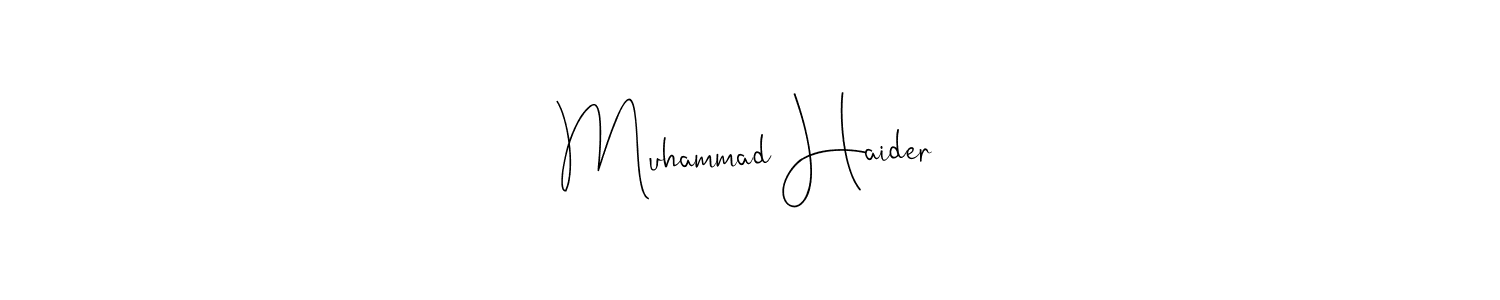 Muhammad Haider